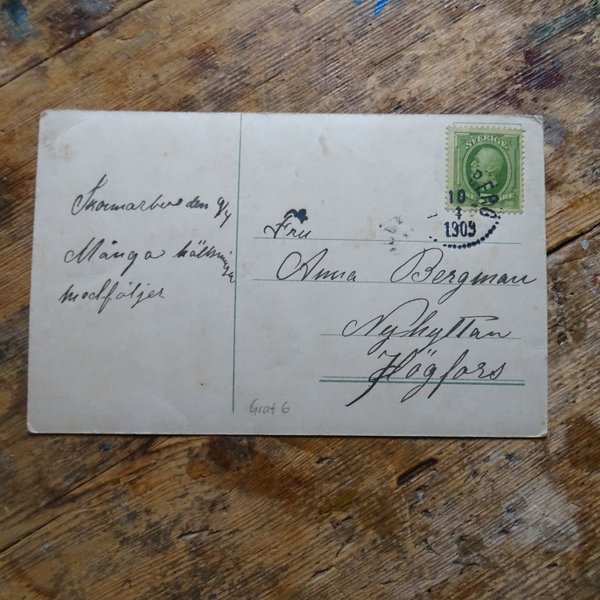 den 9/4
Många hälsningar
medföljer
Fru
Anna Bergman
Nyhyttan
Högfors
SVERIGE
BERG
10
4
1909